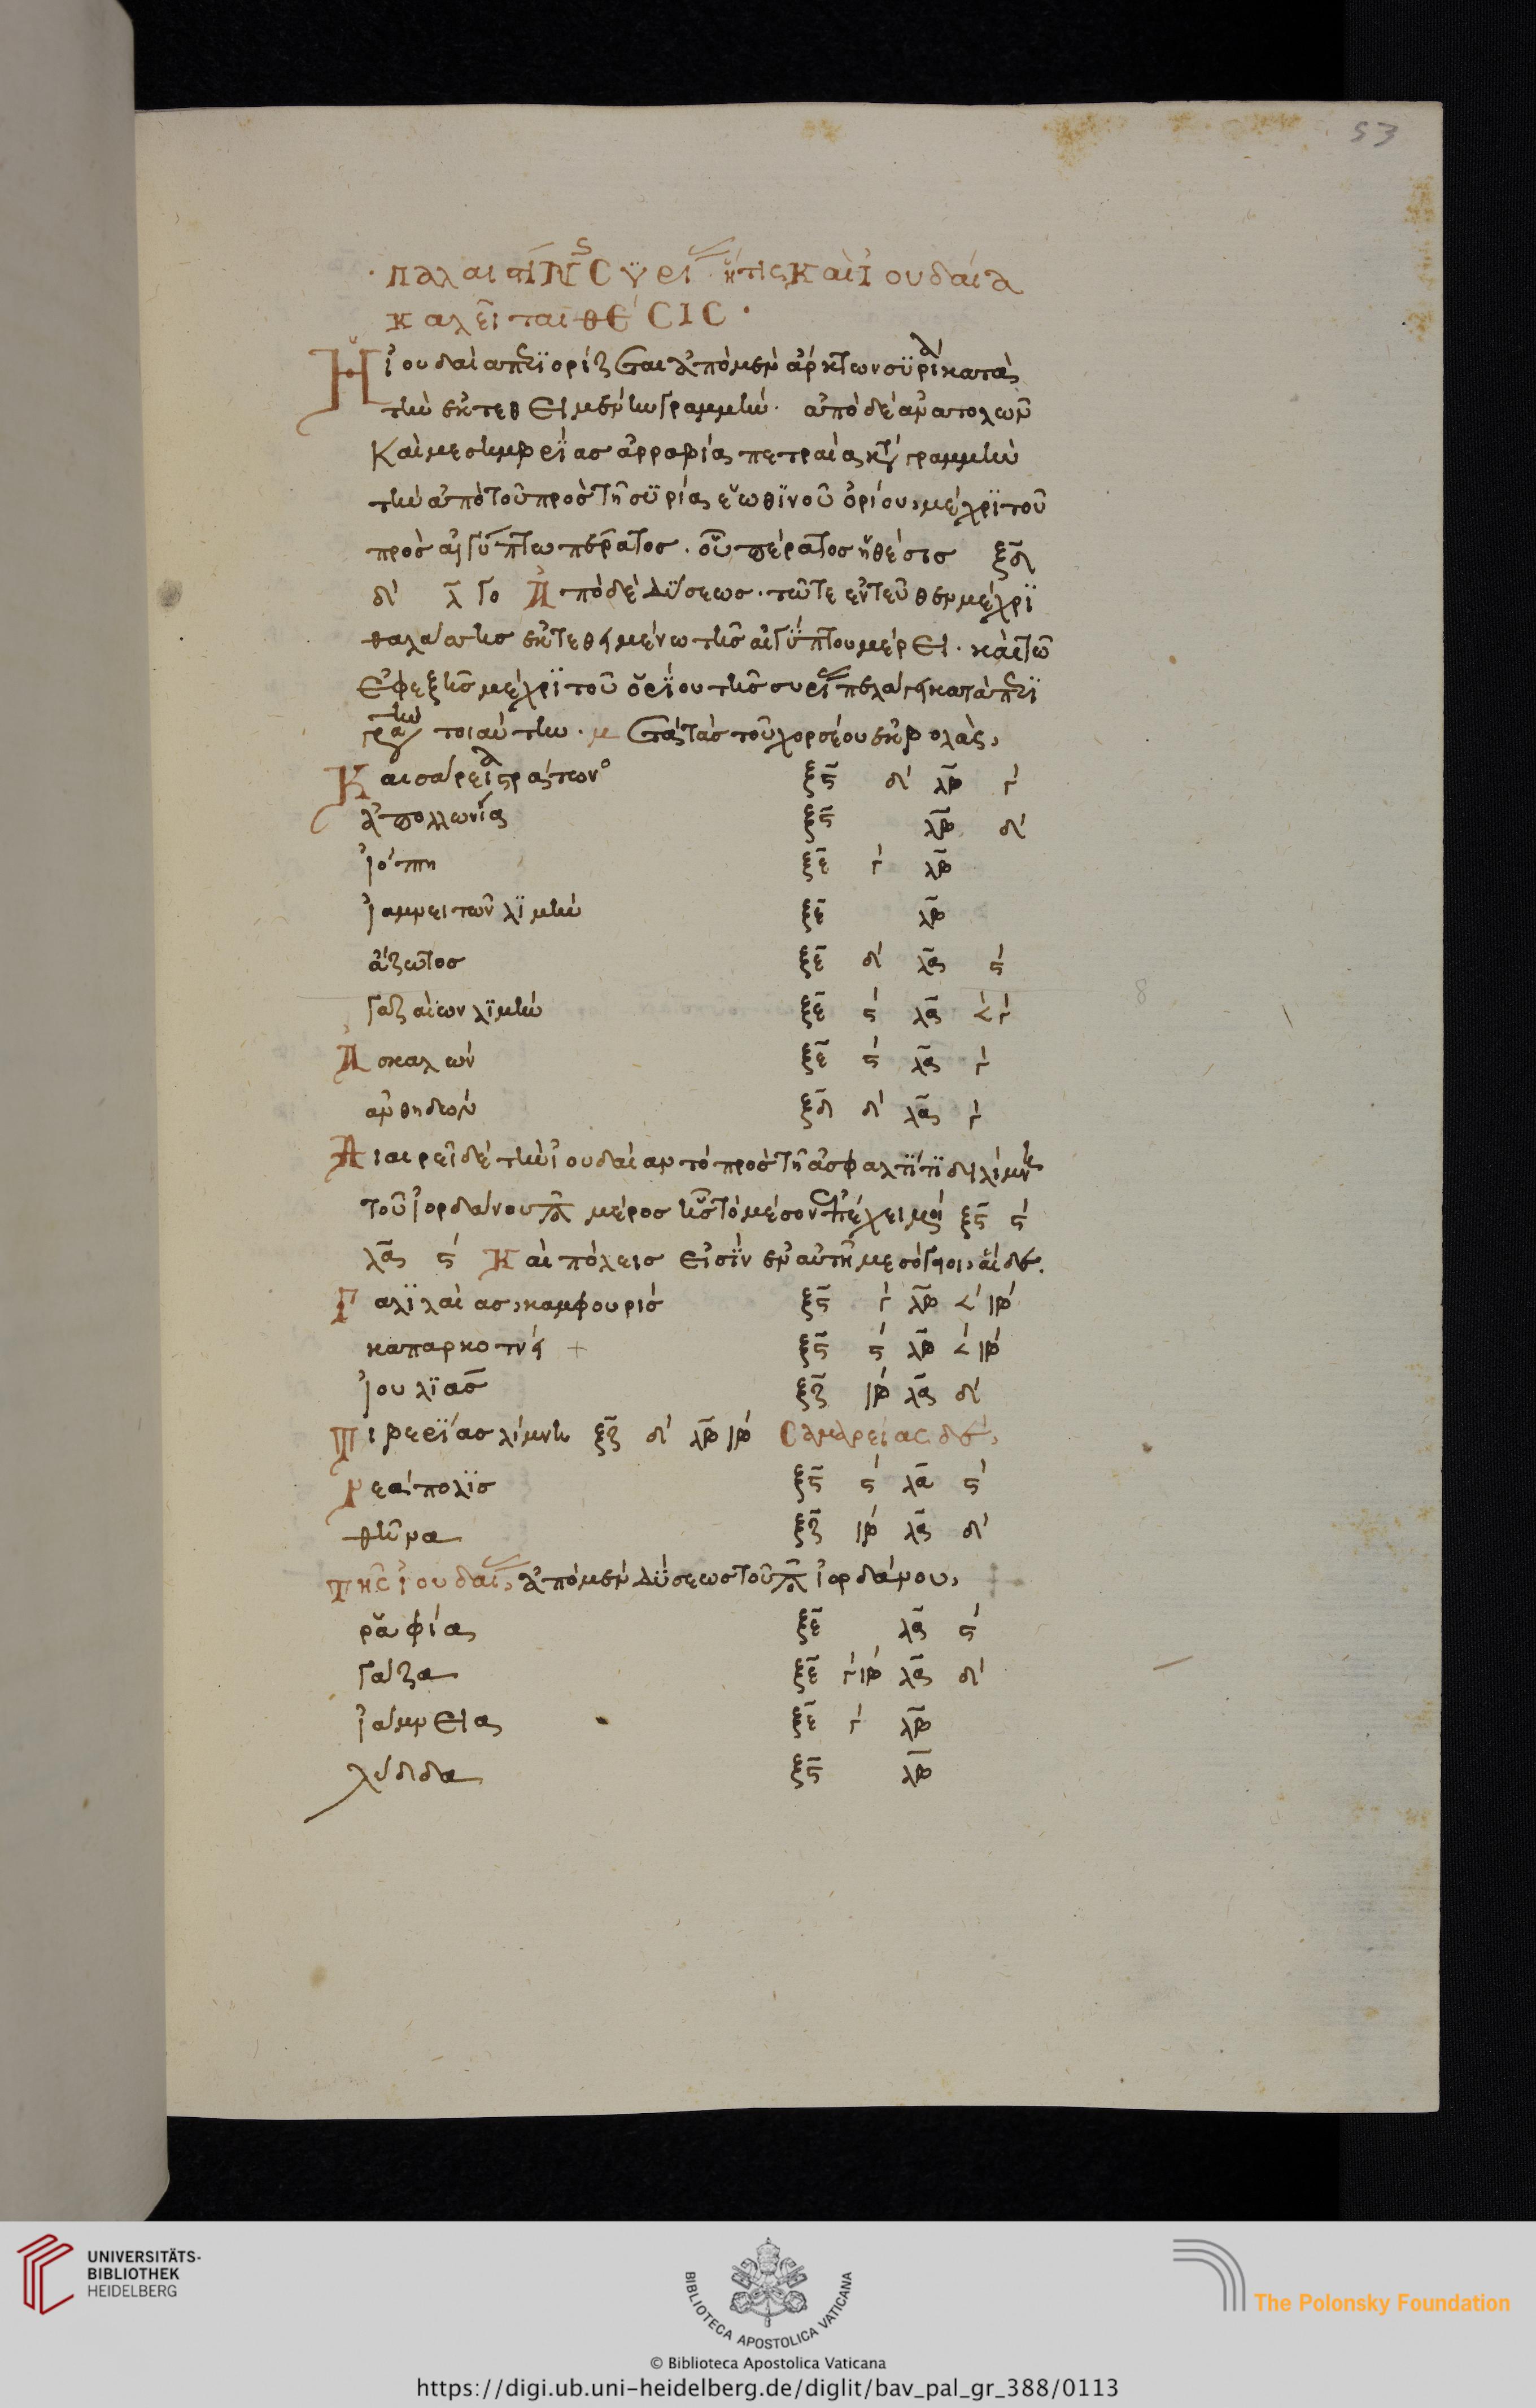 53
παλαιστίνης συρί ἥτις καὶ ἰουδαία
καλεῖται θέσις·
Ἡ ἰουδαία ὁρίζεται ἀπὸ μὲν ἄρκτων συρία κατὰ
τὴν ἐκτεθειμένην γραμμὴν· ἀπὸ δὲ ἀνατολῶν
Καὶ μεσημβρίας ἀρραβίας πετραίας γραμμὴν
τὴν ἀπὸ τοῦ πρὸς τῆ συρία ἑωθϊνοῦ ὁρίου μέχρϊ τοῦ
πρὸς αἰγύπτω πέρατος· οὗ πέρατος ἡ θέσις ξδ
δ' λ γο Ἀπὸ δὲ δύσεως· τῶ τε ἐντεῦθεν μέχρϊ
θαλάσσης ἐκτεθημένω τῆς αἰγύπτου μέρει· καὶ τῶ
ἐφεξῆς μέχρϊ τοῦ ὁρίου τῆς συρί πελάγη κατὰ
τοιαύτην· μετὰ τὰς τοῦ χορσέου ἐκβολὰς
Καισάρεια στράτωνο ξϛ δ' λβ γ'
ἀπολλωνία ξϛ λβ δ'
ἰόππη ξε γ' λβ
ἰαμνειτῶν λϊμὴν ξε λβ
ἄζωτος ξε δ' λα ϛ'
γαζαίων λϊμὴν ξε ϛ' λα <' γ'
Ἀσκαλών ξε ϛ' λα γ'
ἀνθηδών ξδ δ' λα γ'
Διαιρεῖ δὲ τὴν ἰουδαίαν τὸ πρὸς τῆ ἀσφαλτίτϊδι λίμνη
τοῦ ἰορδάνου μέρος ἧς τὸ μέσον ἐπέχει μοί ξϛ ϛ'
λα ϛ' Καὶ πόλεις εἰσὶν ἐν αὐτῆ μεσόγηοι αἵδε.
Γαλϊλαίας σαμφουρίς ξϛ γ' λβ <' ιβ'
καπαρκοτνή + ξϛ ϛ' λβ <' ιβ'
ἰουλϊάς ξζ ιβ' λα δ'
Τιβερϊάς λίμνη ξζ δ' λβ ιβ' Σαμαρείας δέ,
Νεάπολϊς ξϛ ϛ' λα ϛ'
θῆνα ξζ ιβ' λα δ'
Τῆς ἰουδαί, ἀπὸ μὲν δύσεως τοῦ ἰορδάνου,
ῥαφία ξε λα ϛ'
γάζα ξε γ' ιβ' λα δ'
ἰάμνεια ξε γ' λβ
λύδιδα ξϛ λβ
UNIVERSITÄTS-
BIBLIOTHEK
HEIDELBERG
BIBLIOTECA APOSTOLICA VATICANA
The Polonsky Foundation
© Biblioteca Apostolica Vaticana
https://digi.ub.uni-heidelberg.de/diglit/bav_pal_gr_388/0113